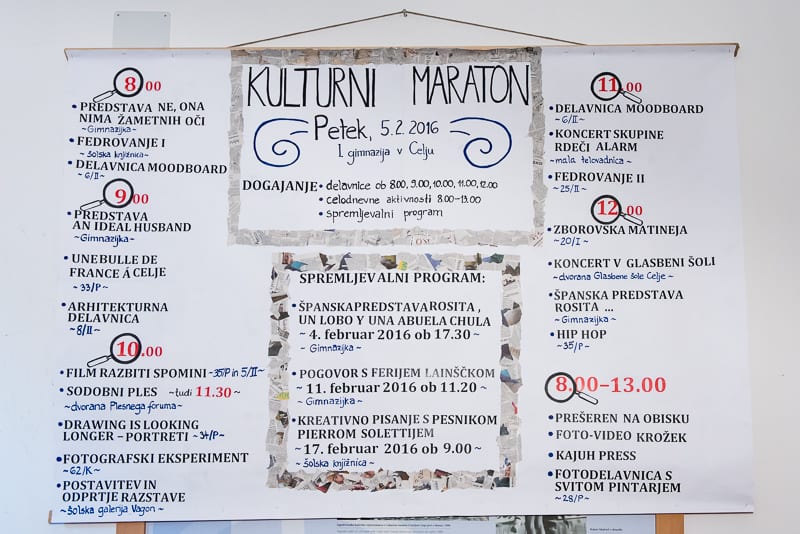 KULTURNI MARATON
Petek, 5.2. 2016
I. gimnazija v Celju
DOGAJANJE • delavnice ob 8.00, 9.00, 10.00, 11.00, 12.00
• celodnevne aktivnosti 8.00-13.00
• spremljevalni program
8.00
• PREDSTAVA NE, ONA
NIMA ŽAMETNIH OČI
~Gimnazijka~
• FEDROVANJE I
~ šolska knjižnica~
• DELAVNICA MOODBOARD
~6/II~
9.00
• PREDSTAVA
AN IDEAL HUSBAND
~Gimnazijka~
• UNE BULLE DE
FRANCE À CELJE
~ 33/P~
• ARHITEKTURNA
DELAVNICA
~ 8/II~
10.00
• FILM RAZBITI SPOMINI ~35/P in 5/II~
• SODOBNI PLES ~tudi 11.30 ~
~dvorana Plesnega foruma~
• DRAWING IS LOOKING
LONGER – PORTRETI ~34/P~
• FOTOGRAFSKI EKSPERIMENT
~62/K~
• POSTAVITEV IN
ODPRTJE RAZSTAVE
~ šolska galerija Vagon ~
SPREMLJEVALNI PROGRAM:
• ŠPANSKA PREDSTAVA ROSITA ,
UN LOBO Y UNA ABUELA CHULA
~ 4. februar 2016 ob 17.30 ~
~ Gimnazijka ~
• POGOVOR S FERIJEM LAINŠČKOM
~ 11. februar 2016 ob 11.20 ~
~ Gimnazijka ~
• KREATIVNO PISANJE S PESNIKOM
PIERROM SOLETTIJEM
~ 17. februar 2016 ob 9.00 ~
~ šolska knjižnica ~
11.00
• DELAVNICA MOODBOARD
~ 6/II~
• KONCERT SKUPINE
RDEČI ALARM
~mala telovadnica~
• FEDROVANJE II
~25/II~
12.00
• ZBOROVSKA MATINEJA
~20/I~
• KONCERT V GLASBENI ŠOLI
~dvorana Glasbene šole Celje~
• ŠPANSKA PREDSTAVA
ROSITA ...
~ Gimnazijka~
• HIP HOP
~35/P~
8.00–13.00
• PREŠEREN NA OBISKU
• FOTO-VIDEO KROŽEK
• KAJUH PRESS
• FOTODELAVNICA S
SVITOM PINTARJEM
~ 28/P ~